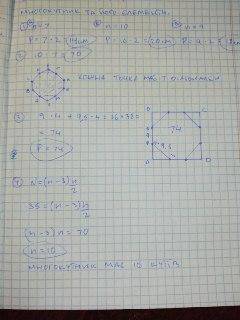 МНОГОКУТНИК ТА ЙОГО ЕЛЕМЕНТИ.
① n = 7 ② n = 10 ③ n = 9
P = 7 · 2 = 14см P = 10 · 2 = 20см P = 9 · 2 =
② 10 · 7 = 70
КОЖНА ТОЧКА МАЄ 7 ДІАГОНАЛЕЙ
③ 9 · 4 + 9,5 · 4 = 36 + 38 =
= 74
P = 74
74
9,5
④ N = (n - 3) n
2
35 = (n - 3) n
2
(n - 3) n = 70
n = 10
МНОГОКУТНИК МАЄ 10 КУТІВ